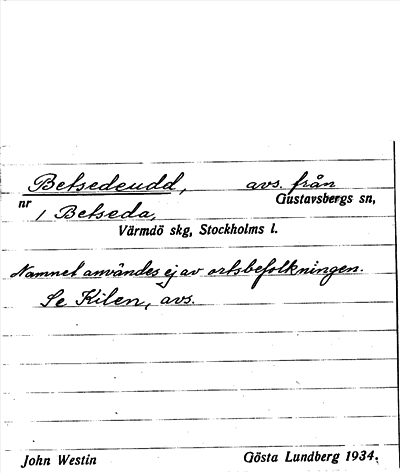 Betsedeudd, avs. från
Gustavsbergs sn,
nr 1 Betseda,
Värmdö skg, Stockholms l.
Namnet användes ej av ortsbefolkningen.
Se Kilen, avs.
John Westin Gösta Lundberg 1934.